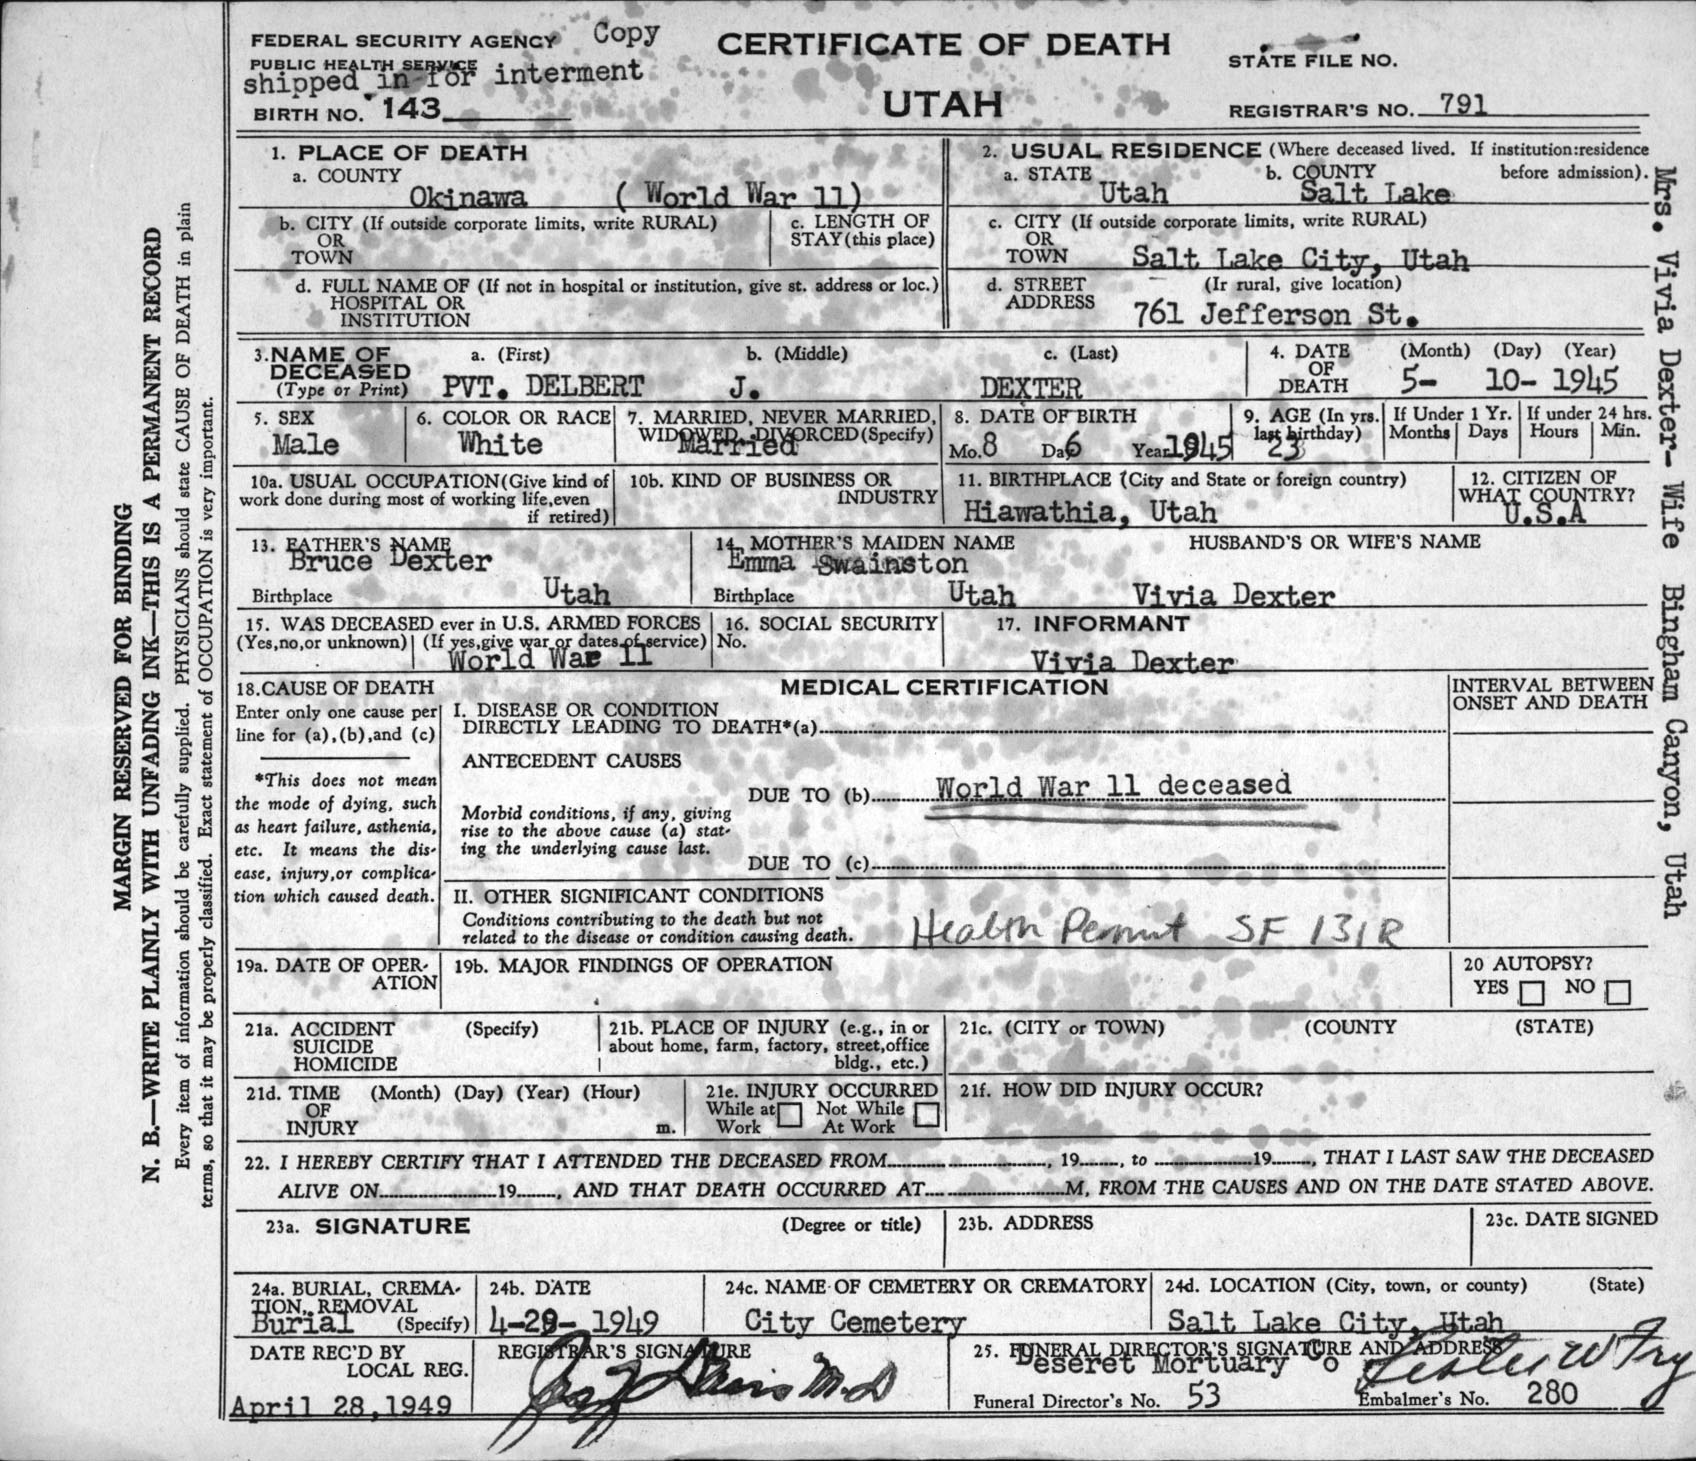 FEDERAL SECURITY AGENCY Copy
PUBLIC HEALTH SERVICE
shipped in for interment
BIRTH NO. 143
CERTIFICATE OF DEATH
UTAH
STATE FILE NO.
REGISTRAR'S NO. 791
1. PLACE OF DEATH
a. COUNTY
Okinawa ( World War 11)
b. CITY (If outside corporate limits, write RURAL)
OR
TOWN
c. LENGTH OF
STAY (this place)
d. FULL NAME OF (If not in hospital or institution, give st. address or loc.)
HOSPITAL OR
INSTITUTION
2. USUAL RESIDENCE (Where deceased lived. If institution:residence
a. STATE b. COUNTY before admission).
Utah Salt Lake
c. CITY (If outside corporate limits, write RURAL)
OR
TOWN Salt Lake City, Utah
d. STREET (Ir rural, give location)
ADDRESS
761 Jefferson St.
3. NAME OF a. (First) b. (Middle) c. (Last)
DECEASED
(Type or Print) PVT. DELBERT J. DEXTER
4. DATE (Month) (Day) (Year)
OF
DEATH 5- 10- 1945
5. SEX
Male
6. COLOR OR RACE
White
7. MARRIED, NEVER MARRIED,
WIDOWED, DIVORCED (Specify)
Married
8. DATE OF BIRTH
Mo. 8 Da 6 Year 1945
9. AGE (In yrs.
last birthday)
23
If Under 1 Yr.
Months Days
If under 24 hrs.
Hours Min.
10a. USUAL OCCUPATION (Give kind of
work done during most of working life, even
if retired)
10b. KIND OF BUSINESS OR
INDUSTRY
11. BIRTHPLACE (City and State or foreign country)
Hiawathia, Utah
12. CITIZEN OF
WHAT COUNTRY?
U.S.A
13. FATHER'S NAME
Bruce Dexter
Birthplace Utah
14. MOTHER'S MAIDEN NAME
Emma Swainston
Birthplace Utah
HUSBAND'S OR WIFE'S NAME
Vivia Dexter
15. WAS DECEASED ever in U.S. ARMED FORCES
(Yes, no, or unknown) (If yes, give war or dates of service)
World War 11
16. SOCIAL SECURITY
No.
17. INFORMANT
Vivia Dexter
18. CAUSE OF DEATH
Enter only one cause per
line for (a), (b), and (c)
*This does not mean
the mode of dying, such
as heart failure, asthenia,
etc. It means the dis-
ease, injury, or complica-
tion which caused death.
MEDICAL CERTIFICATION
I. DISEASE OR CONDITION
DIRECTLY LEADING TO DEATH*(a)
ANTECEDENT CAUSES
DUE TO (b) World War 11 deceased
Morbid conditions, if any, giving
rise to the above cause (a) stat-
ing the underlying cause last.
DUE TO (c)
II. OTHER SIGNIFICANT CONDITIONS
Conditions contributing to the death but not
related to the disease or condition causing death.
Health Permit SF 131R
INTERVAL BETWEEN
ONSET AND DEATH
19a. DATE OF OPER-
ATION
19b. MAJOR FINDINGS OF OPERATION
20 AUTOPSY?
YES NO
21a. ACCIDENT (Specify)
SUICIDE
HOMICIDE
21b. PLACE OF INJURY (e.g., in or
about home, farm, factory, street, office
bldg., etc.)
21c. (CITY or TOWN) (COUNTY (STATE)
21d. TIME (Month) (Day) (Year) (Hour)
OF
INJURY m.
21e. INJURY OCCURRED
While at Not While
Work At Work
21f. HOW DID INJURY OCCUR?
22. I HEREBY CERTIFY THAT I ATTENDED THE DECEASED FROM , 19 , to 19 , THAT I LAST SAW THE DECEASED
ALIVE ON 19 , AND THAT DEATH OCCURRED AT M, FROM THE CAUSES AND ON THE DATE STATED ABOVE.
23a. SIGNATURE (Degree or title)
23b. ADDRESS
23c. DATE SIGNED
24a. BURIAL, CREMA-
TION, REMOVAL
Burial (Specify)
24b. DATE
4-29- 1949
24c. NAME OF CEMETERY OR CREMATORY
City Cemetery
24d. LOCATION (City, town, or county) (State)
Salt Lake City, Utah
DATE REC'D BY
LOCAL REG.
April 28, 1949
REGISTRAR'S SIGNATURE
Davis M.D
25. FUNERAL DIRECTOR'S SIGNATURE AND ADDRESS
Deseret Mortuary Co Leslie W Fry
Funeral Director's No. 53 Embalmer's No. 280
MARGIN RESERVED FOR BINDING
N. B.—WRITE PLAINLY WITH UNFADING INK—THIS IS A PERMANENT RECORD
Every item of information should be carefully supplied. PHYSICIANS should state CAUSE OF DEATH in plain
terms, so that it may be properly classified. Exact statement of OCCUPATION is very important.
Mrs. Vivia Dexter- Wife Bingham Canyon, Utah